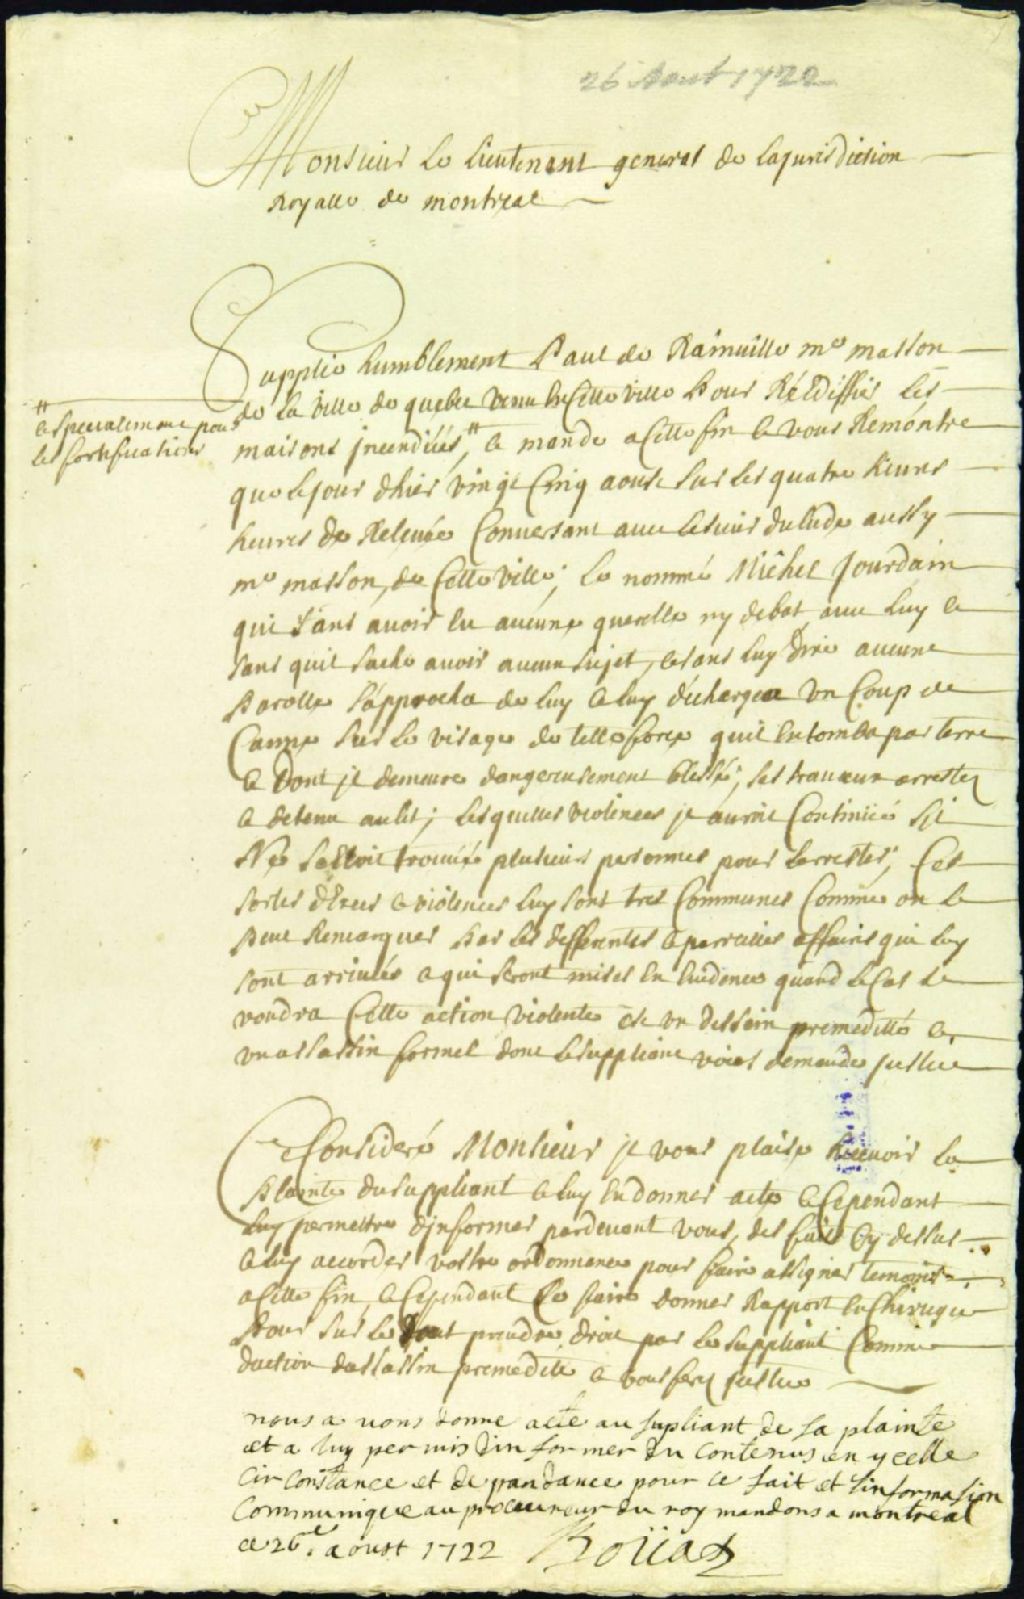 26 Aout 1722
Monsieur Le Lieutenant general de La Jurisdiction
Royalle de montreal
Supplie humblement Paul de Rainville me masson
de La Ville de quebec venu En Cette ville Pour Rééddiffier Les
maisons jncendiées, # Et mande a Cette fin Et vous Remontre
# Et specialement pour
les fortifications
que Le jour dhier vingt Cinq aoust Sur Les quatre heures
heures de Relevée Conversant avec Le Sieur dulude aussy
me masson, de Cette Ville; Le nommé Michel Jourdain
qui Sans avoir Eu aucune querelle ny debat avec Luy Et
Sans quil Sache avoir aucun Sujet, Et Sans Luy Dire aucune
Parolle S'approcha de Luy Et Luy déchargea Un Coup de
Canne Sur Le visage de telle force quil En tomba par terre
Et Dont jl demeure dangereusement blessé; Ses travaux arrestez
Et detenu au lit; Lesquelles violences jl auroit Continüé Sil
Ne Sestoit trouvée plusieurs personnes pour L'arrester; Ces
Sortes d'Exces Et violences Luy Sont tres Communes Comme on Le
Peut Remarquer Par Les differentes Et pareilles affaires qui Luy
Sont arrivées Et qui Seront mises En Evidence quand Le Cas Le
voudra Cette action violente Est Un dessein premedité Et
un assassin formel dont Le Suppliant vous demande justice
Ce Consideré Monsieur jl vous plaise Recevoir La
Plainte du Suppliant Et Luy En donner acte Et Cependant
Luy permettre d'jnformer pardevant vous, des faits Cy dessus
Et Luy accorder vostre ordonnance pour faire assigner temoins
a Cette fin, Et Cependant Se faire donner Rapport En Chirugie
Pour Sur Le tout prendre droit par Le Suppliant Comme
daction dassassin premedité Et vous ferez justice
nous a vons donne acte au supliant de sa plainte
et a luy permis din former du contenus en ycelle
cir constance et de pandance pour ce fait et linformasion
Communique au procureur du roy mandons a montreal
ce 26e aoust 1722 Boüat